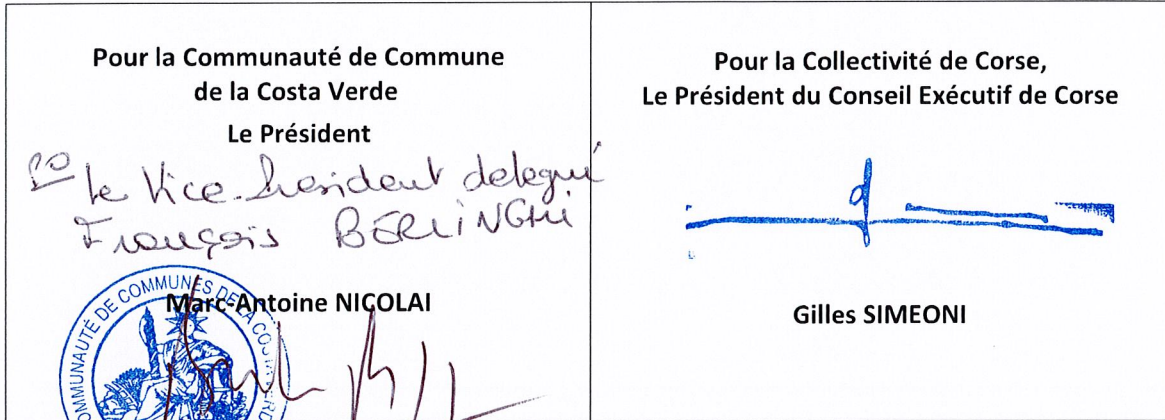 Pour la Communauté de Commune
de la Costa Verde
Le Président
Po le Vice-President delegué
François BERLINGHI
Marc-Antoine NICOLAI
COMMUNAUTÉ DE COMMUNES DE LA CO
Pour la Collectivité de Corse,
Le Président du Conseil Exécutif de Corse
Gilles SIMEONI